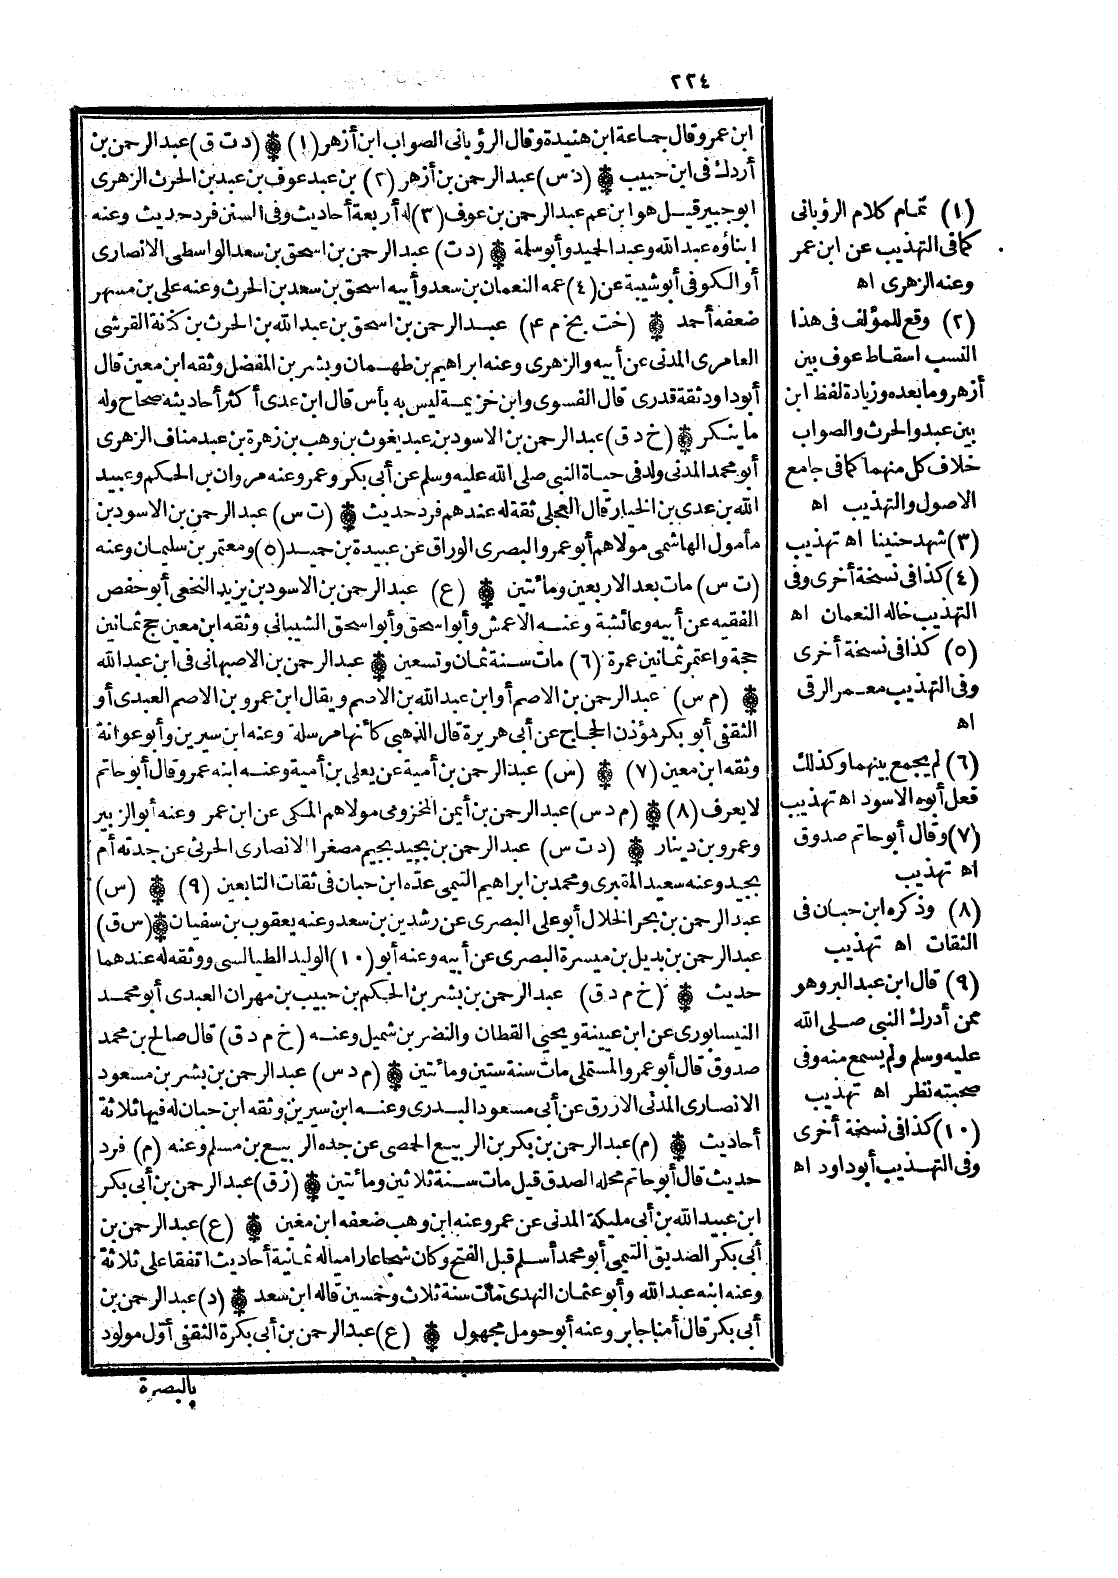 ٢٢٤
ابن عمر وقال جماعة ابن هنيدة وقال الرؤياني الصواب ابن أزهر (١) (د ت ق) عبد الرحمن بن
أردك في ابن حبيب (د س) عبد الرحمن بن أزهر (٢) بن عبد عوف بن عبد بن الحرث الزهري
ابو جبير قيل هو ابن عم عبد الرحمن بن عوف (٣) له أربعة أحاديث وفي السنن فرد حديث وعنه
ابناؤه عبد الله وعبد الحميد وأبو سلمة (د ت) عبد الرحمن بن اسحق بن سعد الواسطى الانصارى
أو الكوفى أبو شيبة عن (٤) عمه النعمان بن سعد وأبيه اسحق بن سعد بن الحرث وعنه على بن مسهر
ضعفه أحمد (خت بخ م ٤) عبد الرحمن بن اسحق بن عبد الله بن الحرث بن كنانة القرشى
العامرى المدنى عن أبيه والزهرى وعنه ابراهيم بن طهمان وبشر بن المفضل وثقه ابن معين قال
أبوداود ثقة قدرى قال الفسوى وابن خزيمة ليس به بأس قال ابن عدى أكثر أحاديثه صحاح وله
ما ينكر (خ د ق) عبد الرحمن بن الاسود بن عبد يغوث بن وهب بن زهرة بن عبد مناف الزهرى
أبو محمد المدنى ولد فى حياة النبى صلى الله عليه وسلم عن أبى بكر وعمر وعنه مروان بن الحكم وعبيد
الله بن عدى بن الخيار قال العجلى ثقة له عندهم فرد حديث (ت س) عبد الرحمن بن الاسود بن
مأمول الهاشمى مولاهم أبو عمرو البصرى الوراق عن عبيدة بن حميد (٥) ومعتمر بن سليمان وعنه
(ت س) مات بعد الاربعين ومائتين (ع) عبد الرحمن بن الاسود بن يزيد النخعى أبو حفص
الفقيه عن أبيه وعائشة وعنه الاعمش وأبو اسحق وأبو اسحق الشيبانى وثقه ابن معين حج ثمانين
حجة واعتمر ثمانين عمرة (٦) مات سنة ثمان وتسعين عبد الرحمن بن الاصبهانى فى ابن عبد الله
(م س) عبد الرحمن بن الاصم أو ابن عبد الله بن الاصم ويقال ابن عمرو بن الاصم العبدى أو
الثقفى أبو بكر مؤذن الحجاج عن أبى هريرة قال الذهبى كأنها مرسلة وعنه ابن سيرين وأبو عوانة
وثقه ابن معين (٧) (س) عبد الرحمن بن أمية عن يعلى بن أمية وعنه ابنه عمرو قال أبو حاتم
لا يعرف (٨) (م د س) عبد الرحمن بن أيمن المخزومى مولاهم المكى عن ابن عمر وعنه أبو الزبير
وعمرو بن دينار (د ت س) عبد الرحمن بن بجيد بجيم مصغرا الانصارى الحرثى عن جدته أم
بجيد وعنه سعيد المقبرى ومحمد بن ابراهيم التيمى عده ابن حبان فى ثقات التابعين (٩) (س)
عبد الرحمن بن بحر الخلال أبو على البصرى عن رشدين بن سعد وعنه يعقوب بن سفيان (س ق)
عبد الرحمن بن بديل بن ميسرة البصرى عن أبيه وعنه أبو (١٠) الوليد الطيالسى ووثقه له عندهما
حديث (خ م د ق) عبد الرحمن بن بشر بن الحكم بن حبيب بن مهران العبدى أبو محمد
النيسابورى عن ابن عيينة ويحيى القطان والنضر بن شميل وعنه (خ م د ق) قال صالح بن محمد
صدوق قال أبو عمرو المستملى مات سنة ستين ومائتين (م د س) عبد الرحمن بن بشر بن مسعود
الانصارى المدنى الازرق عن أبى مسعود البدرى وعنه ابن سيرين وثقه ابن حبان له فيها ثلاثة
أحاديث (م) عبد الرحمن بن بكر بن الربيع الجمحى عن جده الربيع بن مسلم وعنه (م) فرد
حديث قال أبو حاتم محله الصدق قيل مات سنة ثلاثين ومائتين (ز ق) عبد الرحمن بن أبى بكر
ابن عبيد الله بن أبى مليكة المدنى عن عمر وعنه ابن وهب ضعفه ابن معين (ع) عبد الرحمن بن
أبى بكر الصديق التيمى أبو محمد أسلم قبل الفتح وكان شجاعا راميا له ثمانية أحاديث اتفقا على ثلاثة
وعنه ابنه عبد الله وأبو عثمان النهدى مات سنة ثلاث وخمسين قاله ابن سعد (د) عبد الرحمن بن
أبى بكر قال أمنا جابر وعنه أبو حومل مجهول (ع) عبد الرحمن بن أبى بكرة الثقفى أول مولود
بالبصرة
(١) تمام كلام الرؤيانى
كما فى التهذيب عن ابن عمر
وعنه الزهرى اه
(٢) وقع للمؤلف فى هذا
النسب اسقاط عوف بين
أزهر وما بعده وزيادة لفظ ابن
بين عبد والحرث والصواب
خلاف كل منهما كما فى جامع
الاصول والتهذيب اه
(٣) شهد حنينا اه تهذيب
(٤) كذا فى نسخة أخرى وفى
التهذيب خاله النعمان اه
(٥) كذا فى نسخة أخرى
وفى التهذيب معمر الرقى
اه
(٦) لم يجمع بينهما وكذلك
فعل أبوه الاسود اه تهذيب
(٧) وقال أبو حاتم صدوق
اه تهذيب
(٨) وذكره ابن حبان فى
الثقات اه تهذيب
(٩) قال ابن عبد البر وهو
ممن أدرك النبى صلى الله
عليه وسلم ولم يسمع منه وفى
صحبته نظر اه تهذيب
(١٠) كذا فى نسخة أخرى
وفى التهذيب أبو داود اه